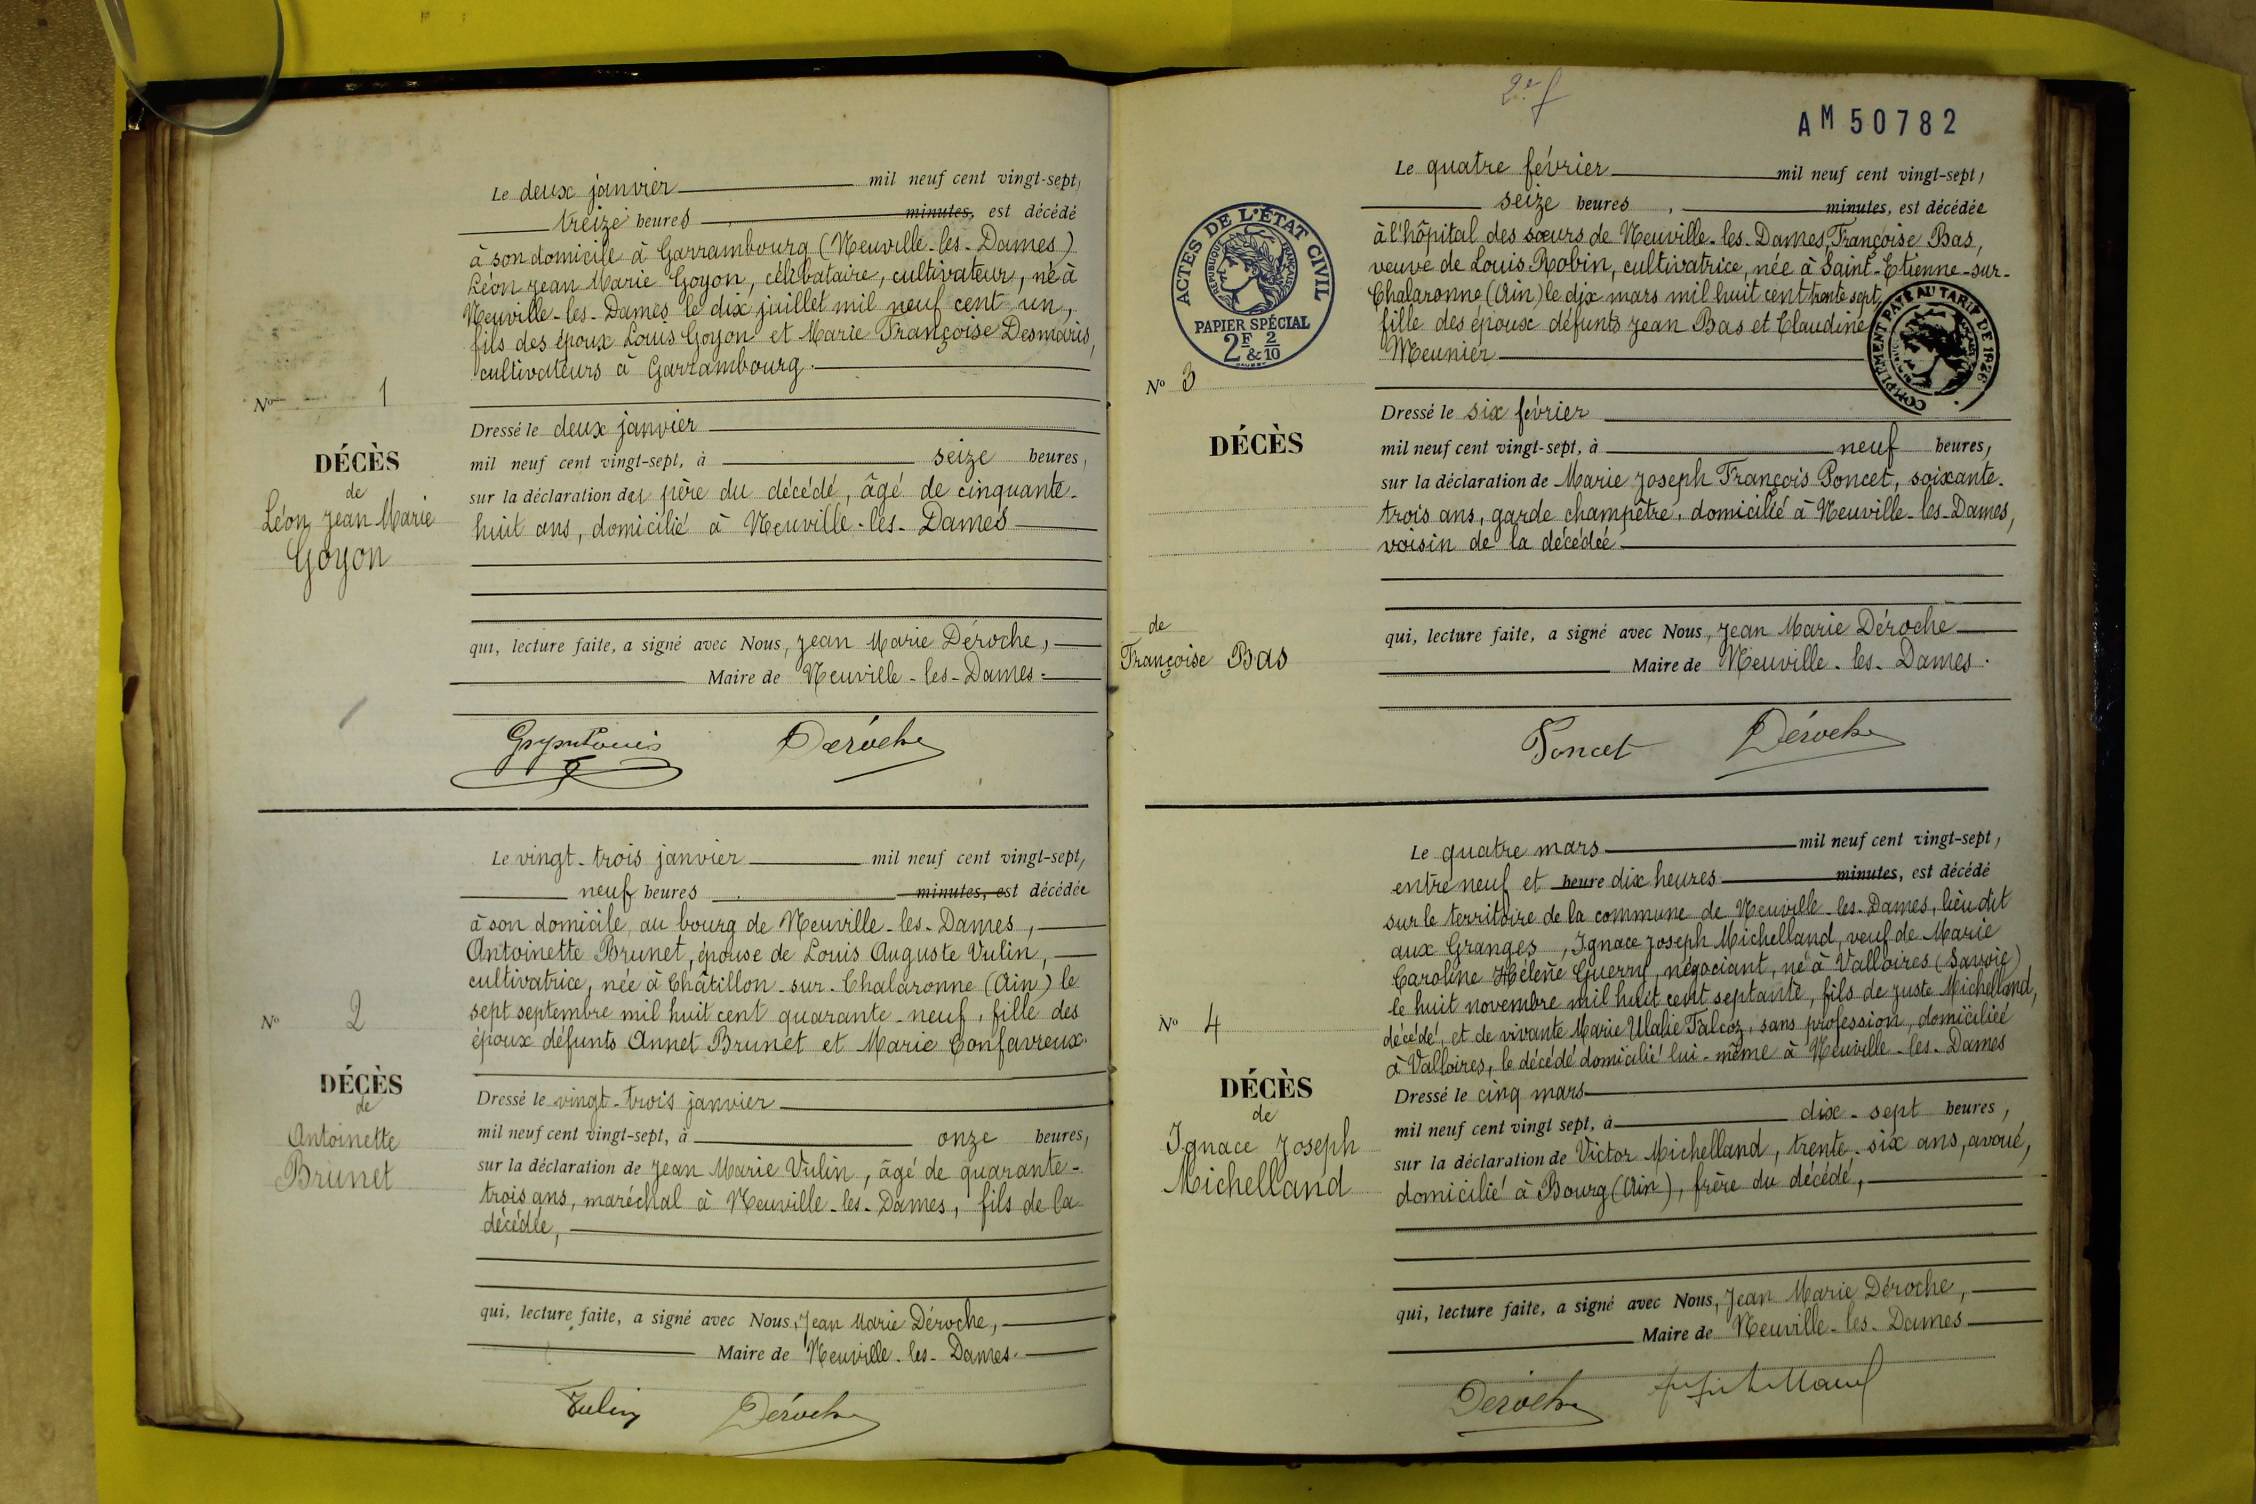 Le deux janvier mil neuf cent vingt-sept,
treize heures minutes, est décédé
à son domicile à Garrambourg (Neuville-les-Dames)
Léon Jean Marie Goyon, célibataire, cultivateur, né à
Neuville-les-Dames le dix juillet mil neuf cent un,
fils des époux Louis Goyon et Marie Françoise Desmaris,
cultivateurs à Garrambourg.
N° 1
DÉCÈS
de
Léon Jean Marie
Goyon
Dressé le deux janvier
mil neuf cent vingt-sept, à seize heures,
sur la déclaration du père du décédé, âgé de cinquante-
huit ans, domicilié à Neuville-les-Dames
qui, lecture faite, a signé avec Nous, Jean Marie Déroche,
Maire de Neuville-les-Dames.
Goyon Louis Déroche
Le vingt-trois janvier mil neuf cent vingt-sept,
neuf heures minutes, est décédée
à son domicile au bourg de Neuville-les-Dames,
Antoinette Brunet, épouse de Louis Auguste Vulin,
cultivatrice, née à Châtillon-sur-Chalaronne (Ain) le
sept septembre mil huit cent quarante-neuf, fille des
époux défunts Annet Brunet et Marie Confavreux.
N° 2
DÉCÈS
de
Antoinette
Brunet
Dressé le vingt-trois janvier
mil neuf cent vingt-sept, à onze heures,
sur la déclaration de Jean Marie Vulin, âgé de quarante-
trois ans, maréchal à Neuville-les-Dames, fils de la
décédée,
qui, lecture faite, a signé avec Nous, Jean Marie Déroche,
Maire de Neuville-les-Dames.
Vulin Déroche
2e f
AM 50782
ACTES DE L'ÉTAT CIVIL
RÉPUBLIQUE FRANÇAISE
PAPIER SPÉCIAL
2F & 2/10
Le quatre février mil neuf cent vingt-sept,
seize heures, minutes, est décédée
à l'hôpital des sœurs de Neuville-les-Dames, Françoise Bas,
veuve de Louis Robin, cultivatrice, née à Saint-Etienne-sur-
Chalaronne (Ain) le dix mars mil huit cent trente sept,
fille des époux défunts Jean Bas et Claudine
Meunier
COMPLEMENT PAYÉ AU TARIF DE 1926
N° 3
DÉCÈS
de
Françoise Bas
Dressé le six février
mil neuf cent vingt-sept, à neuf heures,
sur la déclaration de Marie Joseph François Poncet, soixante-
trois ans, garde champêtre, domicilié à Neuville-les-Dames,
voisin de la décédée
qui, lecture faite, a signé avec Nous, Jean Marie Déroche
Maire de Neuville-les-Dames.
Poncet Déroche
Le quatre mars mil neuf cent vingt-sept,
entre neuf et heure dix heures minutes, est décédé
sur le territoire de la commune de Neuville-les-Dames, lieu dit
aux Granges, Ignace Joseph Michelland, veuf de Marie
Caroline Hélène Guerry, négociant, né à Valloires (Savoie)
le huit novembre mil huit cent septante, fils de Juste Michelland,
décédé, et de vivante Marie Ulalie Falcoz, sans profession, domiciliée
à Valloires, le décédé domicilié lui-même à Neuville-les-Dames
N° 4
DÉCÈS
de
Ignace Joseph
Michelland
Dressé le cinq mars
mil neuf cent vingt sept, à dix-sept heures,
sur la déclaration de Victor Michelland, trente-six ans, avoué,
domicilié à Bourg (Ain), frère du décédé,
qui, lecture faite, a signé avec Nous, Jean Marie Déroche,
Maire de Neuville-les-Dames
Déroche